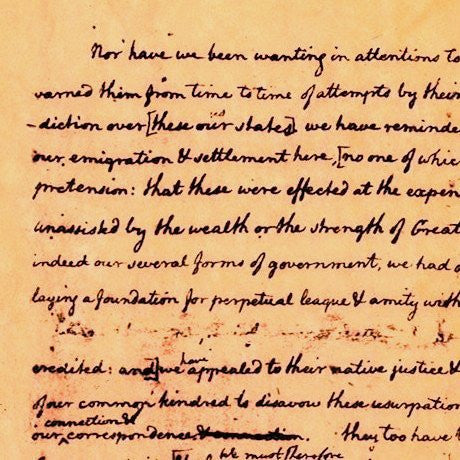 Nor have we been wanting in attentions to
warned them from time to time of attempts by their
-diction over [these our states] we have reminde
our emigration & settlement here, [no one of whic
pretension: that these were effected at the expen
unassisted by the wealth or the strength of Great
indeed our several forms of government, we had a
laying a foundation for perpetual league & amity with
credited: and] we have appealed to their native justice &
of our common kindred to disavow these usurpation
connection &
our correspondence & connection. they too have
We must therefore